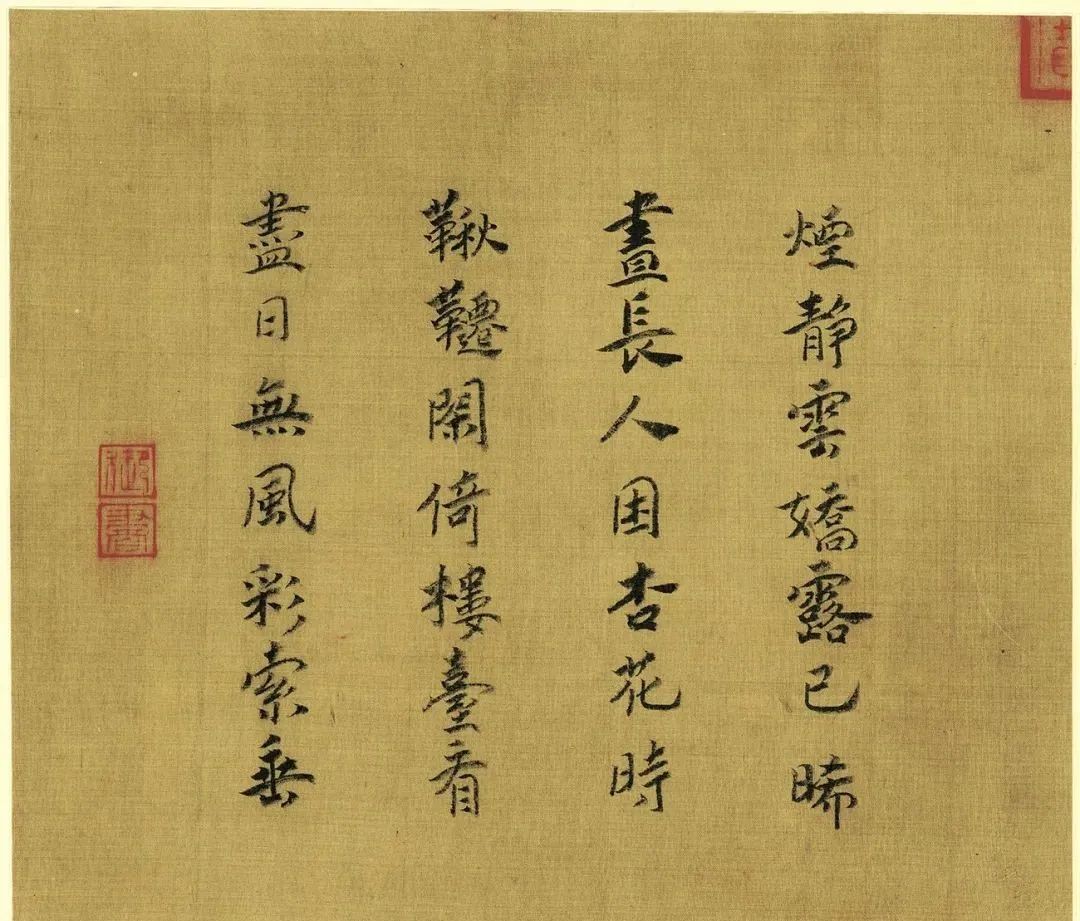 煙靜雲嬌露已晞
晝長人困杏花時
鞦韆閑倚樓臺看
盡日無風彩索垂
御書